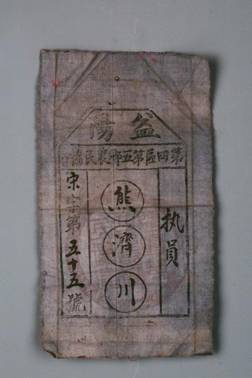 益陽
第四區第五鄉農民協會
執員
熊濟川
宋字第五十五號